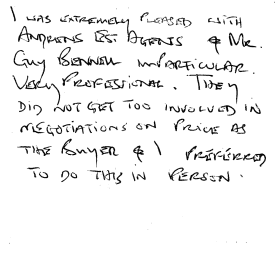 I WAS EXTREMELY PLEASED WITH
ANDREWS EST. AGENTS & MR.
GUY BENNELL IN PARTICULAR.
VERY PROFESSIONAL. THEY
DID NOT GET TOO INVOLVED IN
NEGOTIATIONS ON PRICE AS
THE BUYER & I PREFERRED
TO DO THIS IN PERSON.